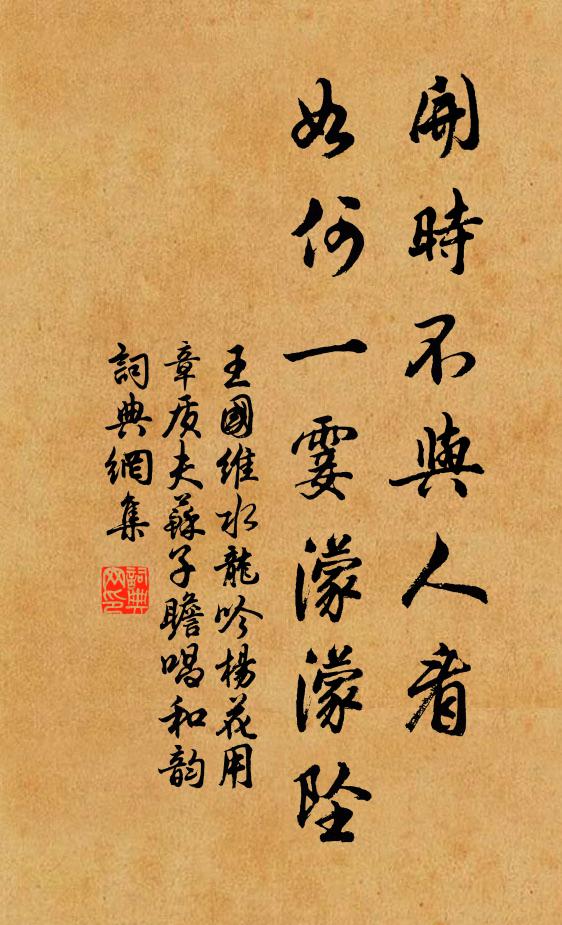 開時不與人看
如何一霎濛濛墜
王國維水龍吟楊花用
章质夫蘇子瞻唱和韵
詞典網集
詞典网印